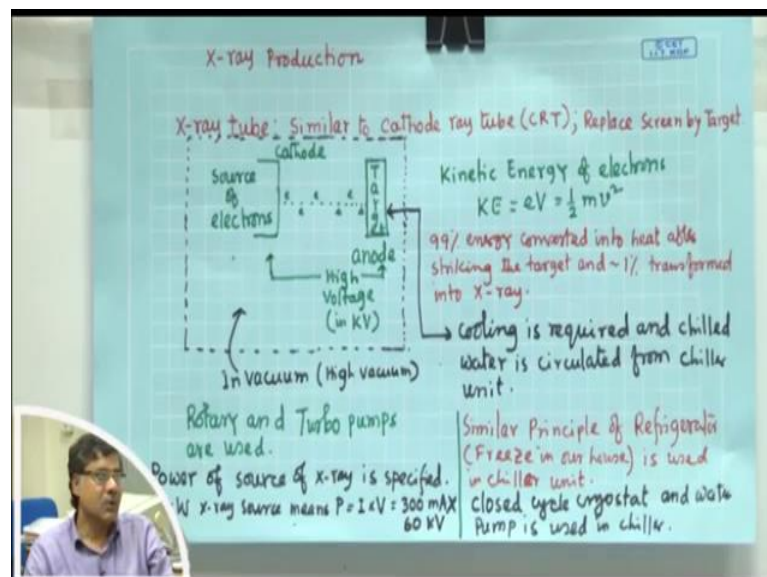 X-ray Production
©CET
I.I.T. KGP
X-ray tube: Similar to Cathode ray tube (CRT); Replace Screen by Target
cathode
Source
of
electrons
e e e
e e e
Target
anode
High
Voltage
(in KV)
In vacuum (High vacuum)
Kinetic Energy of electrons
KE = eV = ½ mv²
99% energy converted into heat after
striking the target and ~1% transformed
into X-ray.
Cooling is required and chilled
water is circulated from chiller
unit.
Rotary and Turbo pumps
are used.
Power of source of x-ray is specified.
W x-ray source means P = I x V = 300 mA X
60 KV
Similar Principle of Refrigerator
(Freeze in our house) is used
in chiller unit.
closed cycle cryostat and water
Pump is used in chiller.